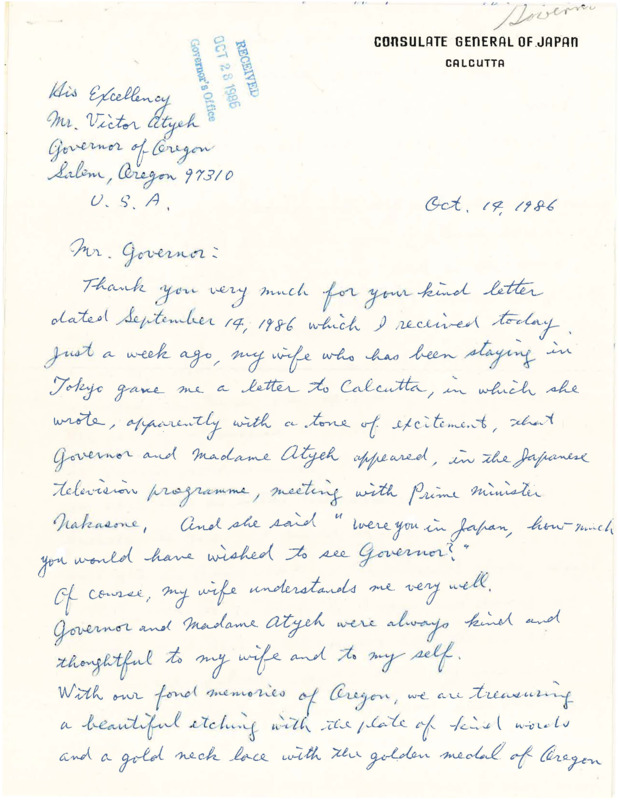 Governor
CONSULATE GENERAL OF JAPAN
CALCUTTA
RECEIVED
OCT 28 1986
Governor's Office
His Excellency
Mr. Victor Atyeh
Governor of Oregon
Salem, Oregon 97310
U. S. A.
Oct. 14, 1986
Mr. Governor:
Thank you very much for your kind letter
dated September 14, 1986 which I received today.
Just a week ago, my wife who has been staying in
Tokyo gave me a letter to Calcutta, in which she
wrote, apparently with a tone of excitement, that
Governor and Madame Atyeh appeared, in the Japanese
television programme, meeting with Prime Minister
Nakasone. And she said "were you in Japan, how much
you would have wished to see Governor!"
Of course, my wife understands me very well.
Governor and Madame Atyeh were always kind and
thoughtful to my wife and to my self.
With our fond memories of Oregon, we are treasuring
a beautiful etching with the plate of kind words
and a gold neck lace with the golden medal of Oregon